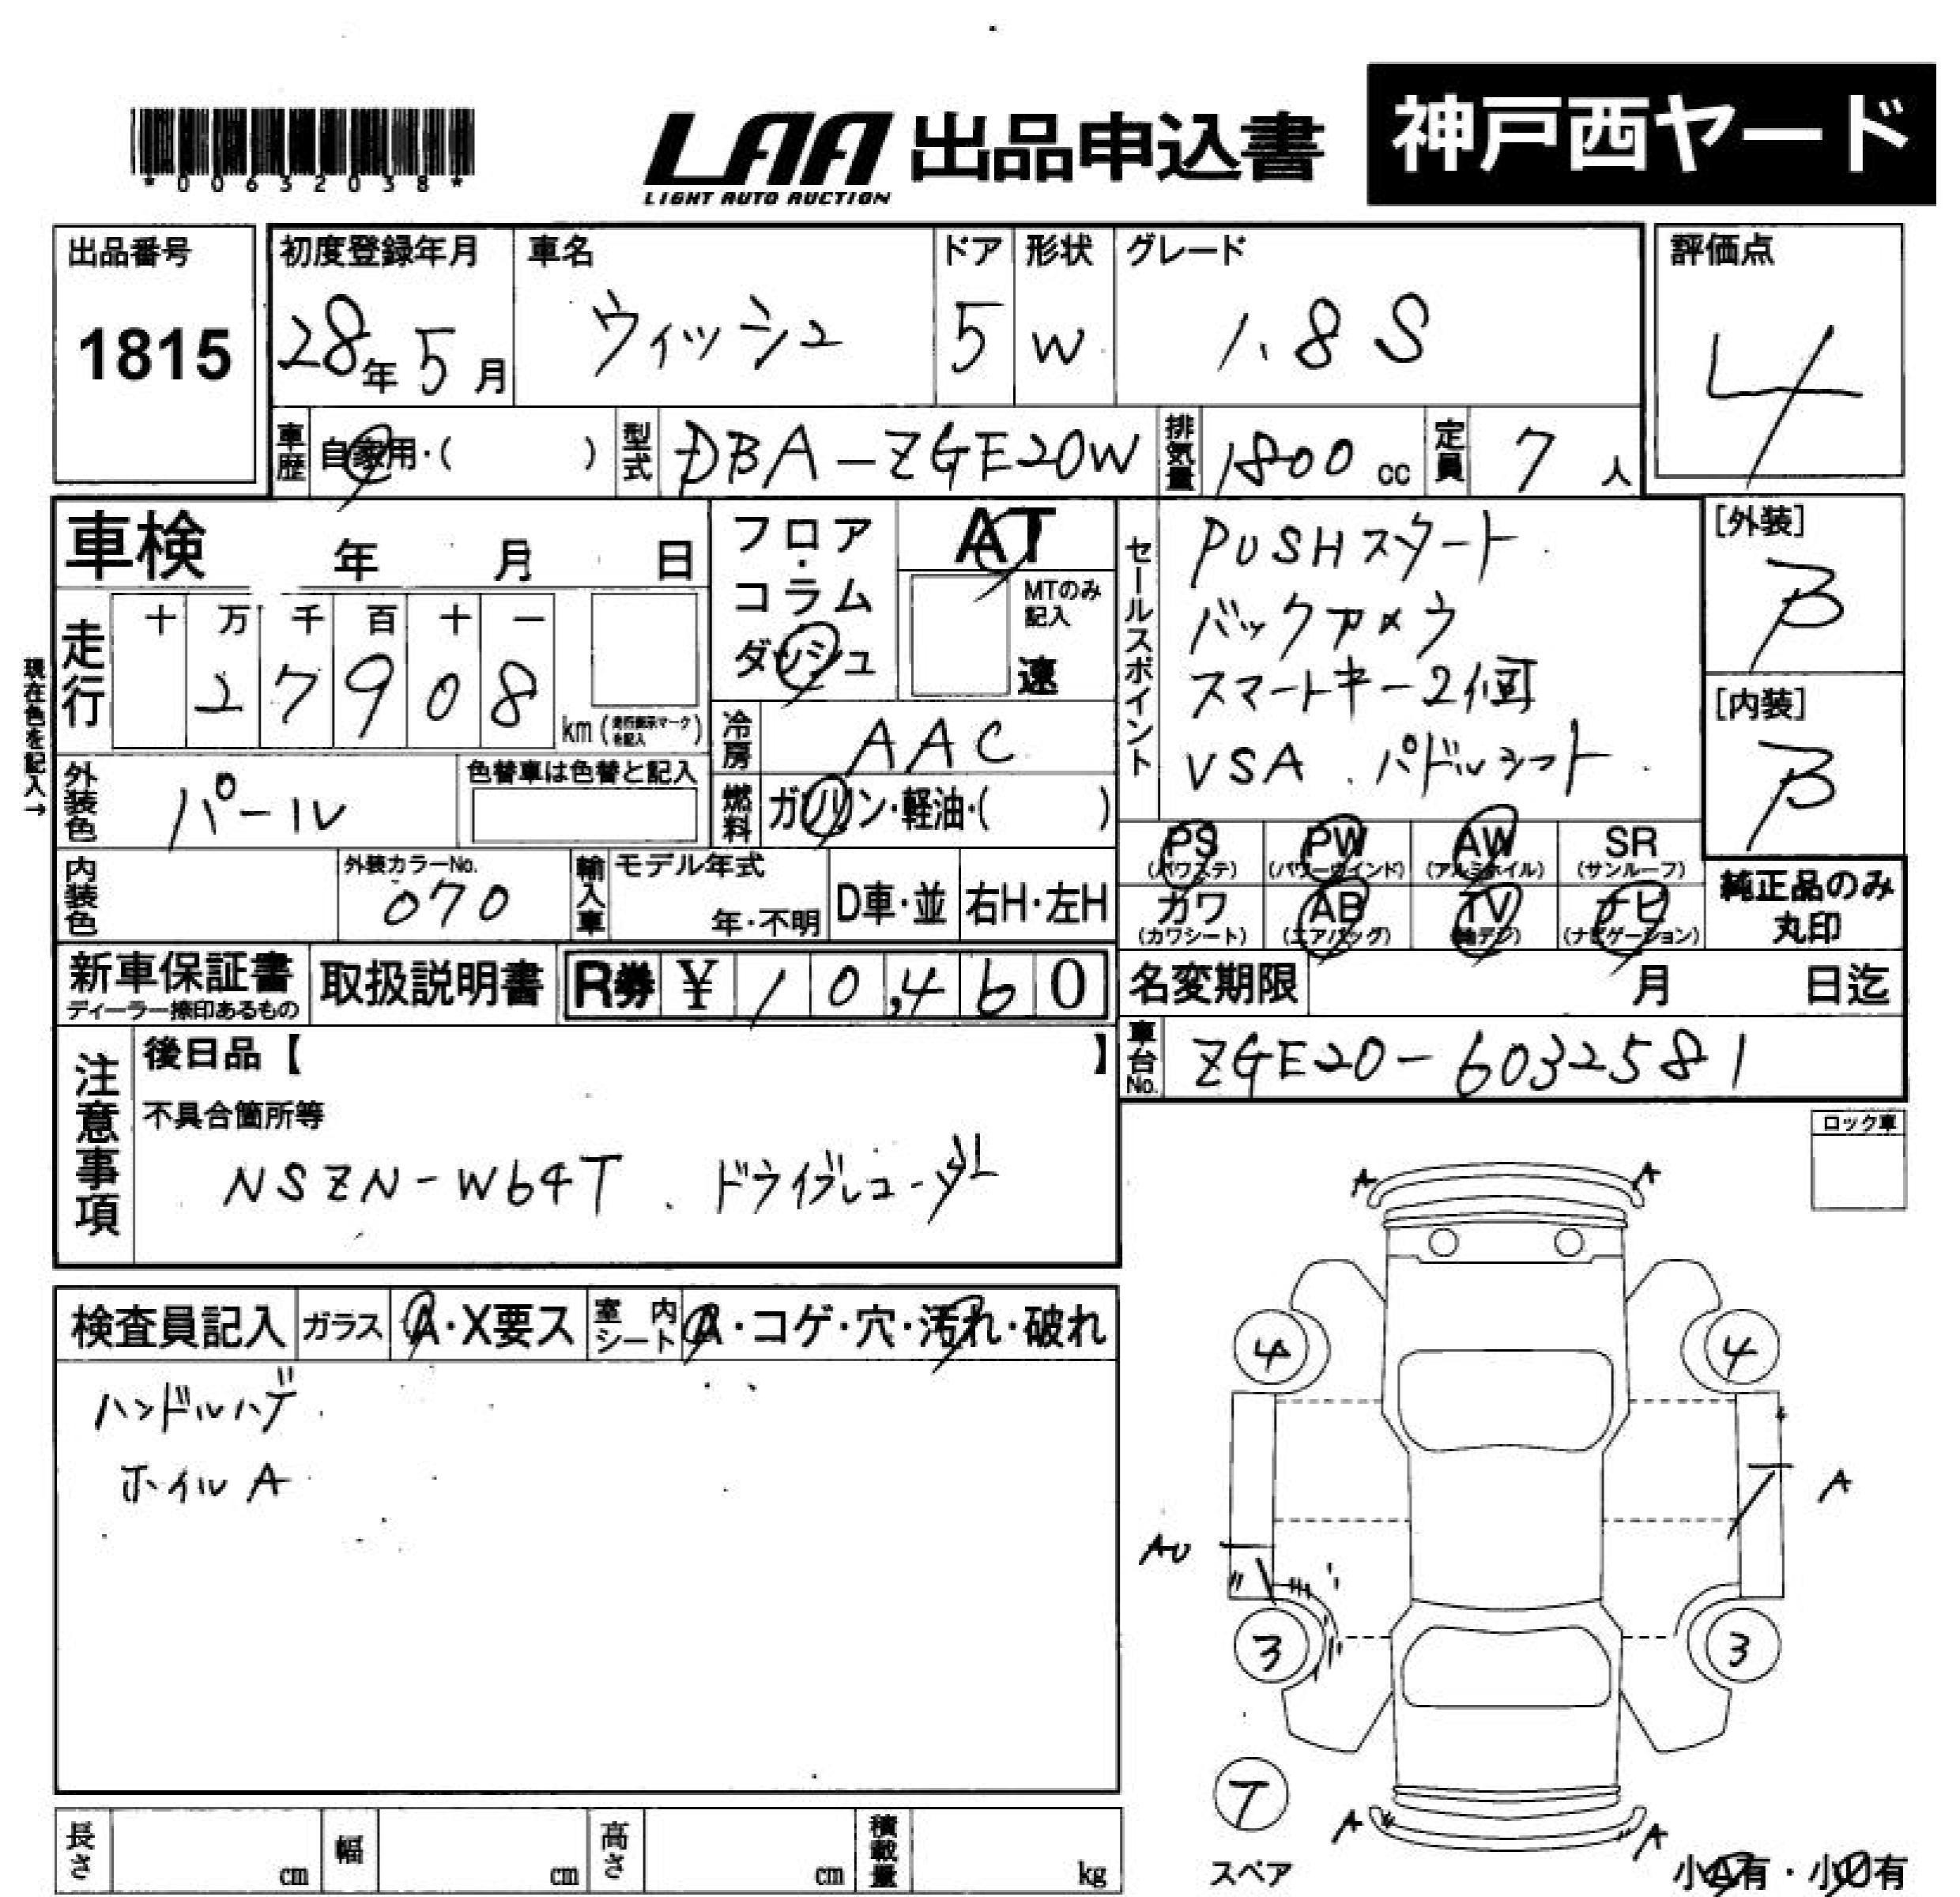 *00632038*
LAA 出品申込書 神戸西ヤード
LIGHT AUTO AUCTION
出品番号
1815
初度登録年月 車名 ドア 形状 グレード
28年 5月 ウィッシュ 5 W 1.8 S
評価点
4
車歴 自家用・( ) 型式 DBA-ZGE20W 排気量 1800 cc 定員 7 人
車検 年 月 日
フロア・コラム ダッシュ
AT
MTのみ記入
速
セールスポイント
PUSHスタート
バックカメラ
スマートキー2個
VSA、パドルシフト
[外装]
B
[内装]
B
現在色を記入→
走行 十 万 千 百 十 一
27908
km (走行表示マークを記入)
冷房 AAC
外装色 パール
色替車は色替と記入
燃料 ガソリン・軽油・( )
PS PW AW SR
(パワステ) (パワーウインド) (アルミホイル) (サンルーフ)
カワ AB TV ナビ
(カワシート) (エアバッグ) (地デジ) (ナビゲーション)
純正品のみ
丸印
内装色
外装カラーNo.
070
輸入車 モデル年式
年・不明 D車・並 右H・左H
新車保証書 取扱説明書 R券 ¥ 10,460
ディーラー捺印あるもの
名変期限 月 日迄
車台No. ZGE20-6032581
注意事項
後日品【 】
不具合箇所等
NSZN-W64T、ドライブレコーダー
ロック車
検査員記入 ガラス A・X要ス 室内シート A・コゲ・穴・汚れ・破れ
ハンドルハゲ
ホイルA
A A
4 4
A
AU
3 3
T
スペア
A A
小A有・小U有
長さ cm 幅 cm 高さ cm 積載量 kg